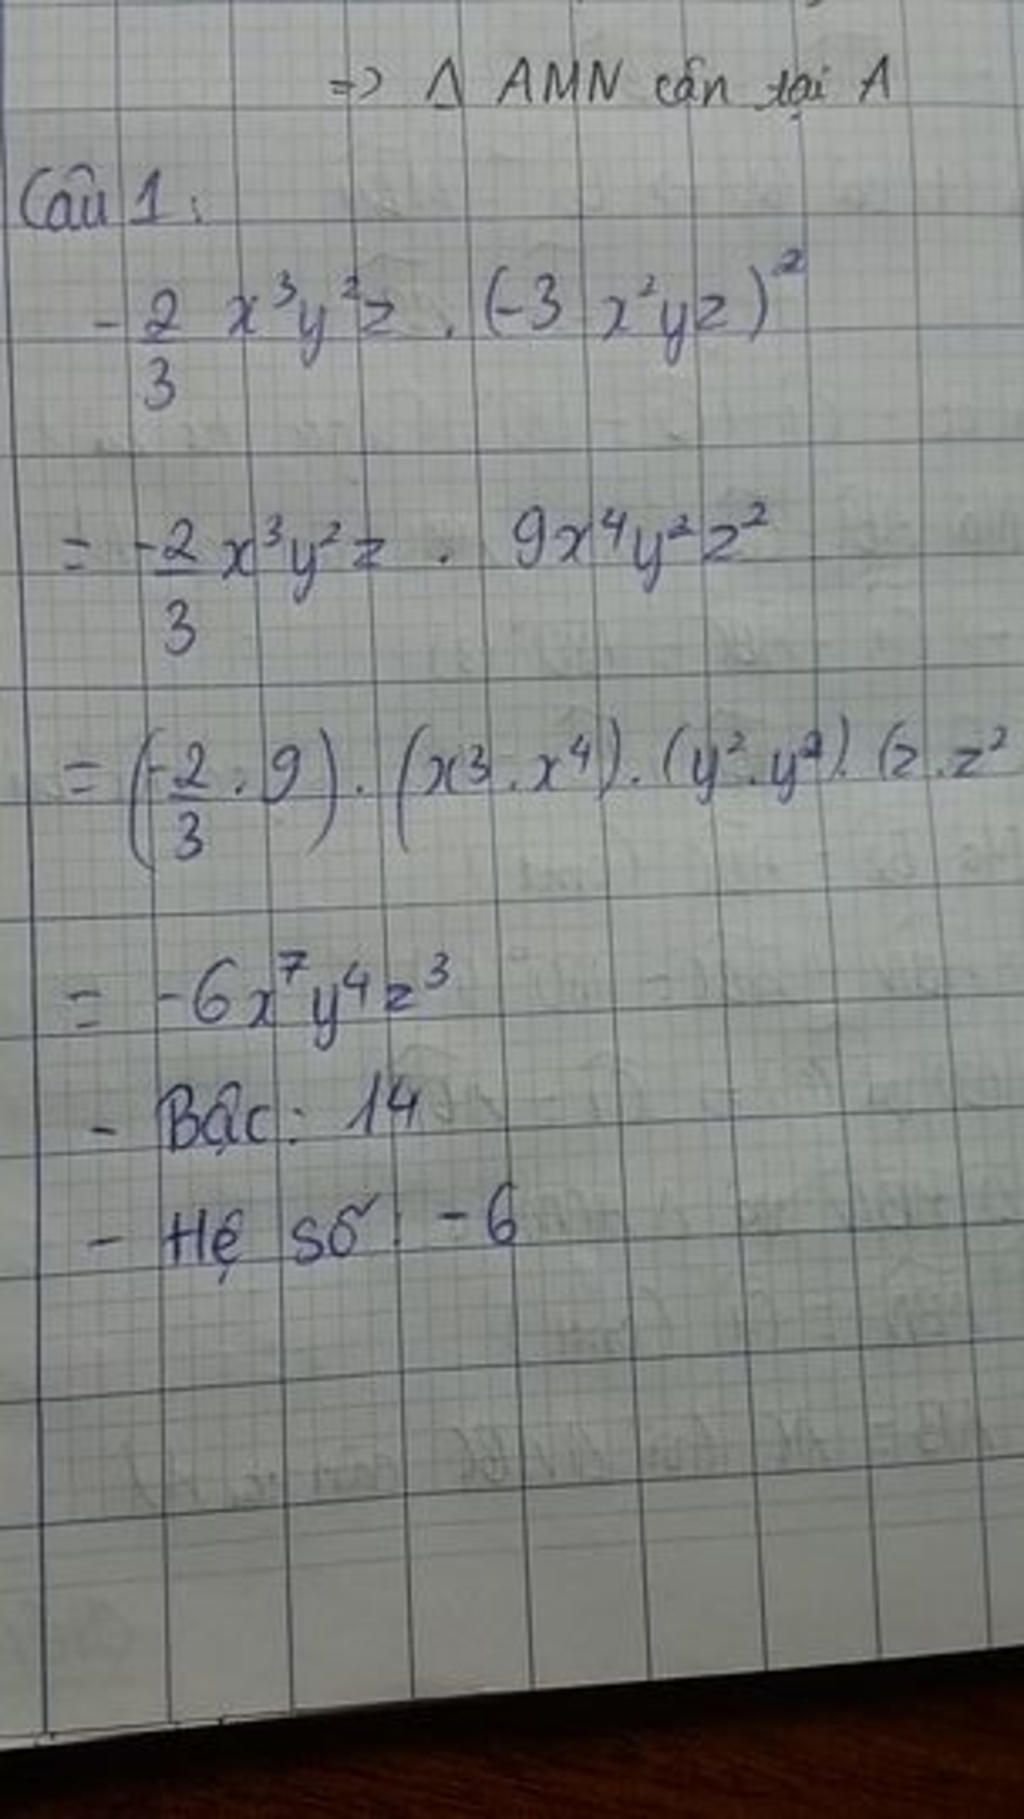 => Δ AMN cân tại A
Câu 1:
- 2/3 x³y²z . (-3 x²yz)²
= -2/3 x³y²z . 9x⁴y²z²
= (-2/3 . 9) . (x³ . x⁴) . (y² . y²) . (z . z²
= -6x⁷y⁴z³
- Bậc: 14
- Hệ số: -6